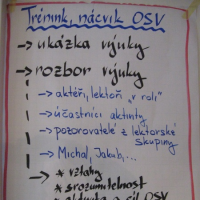 Trénink, nácvik OSV
→ ukázka výuky
→ rozbor výuky
→ aktéři, lektoři „v roli"
→ účastníci aktivity
→ pozorovatelé z lektorské
skupiny
→ Michal, Jakub,...
→ * vztahy
* srozumitelnost
cíl OSV